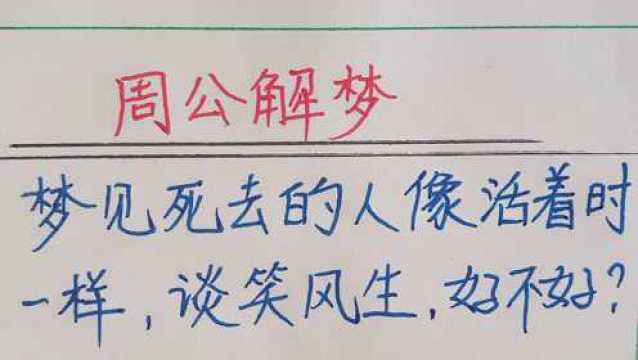 周公解梦
梦见死去的人像活着时
一样,谈笑风生,好不好?